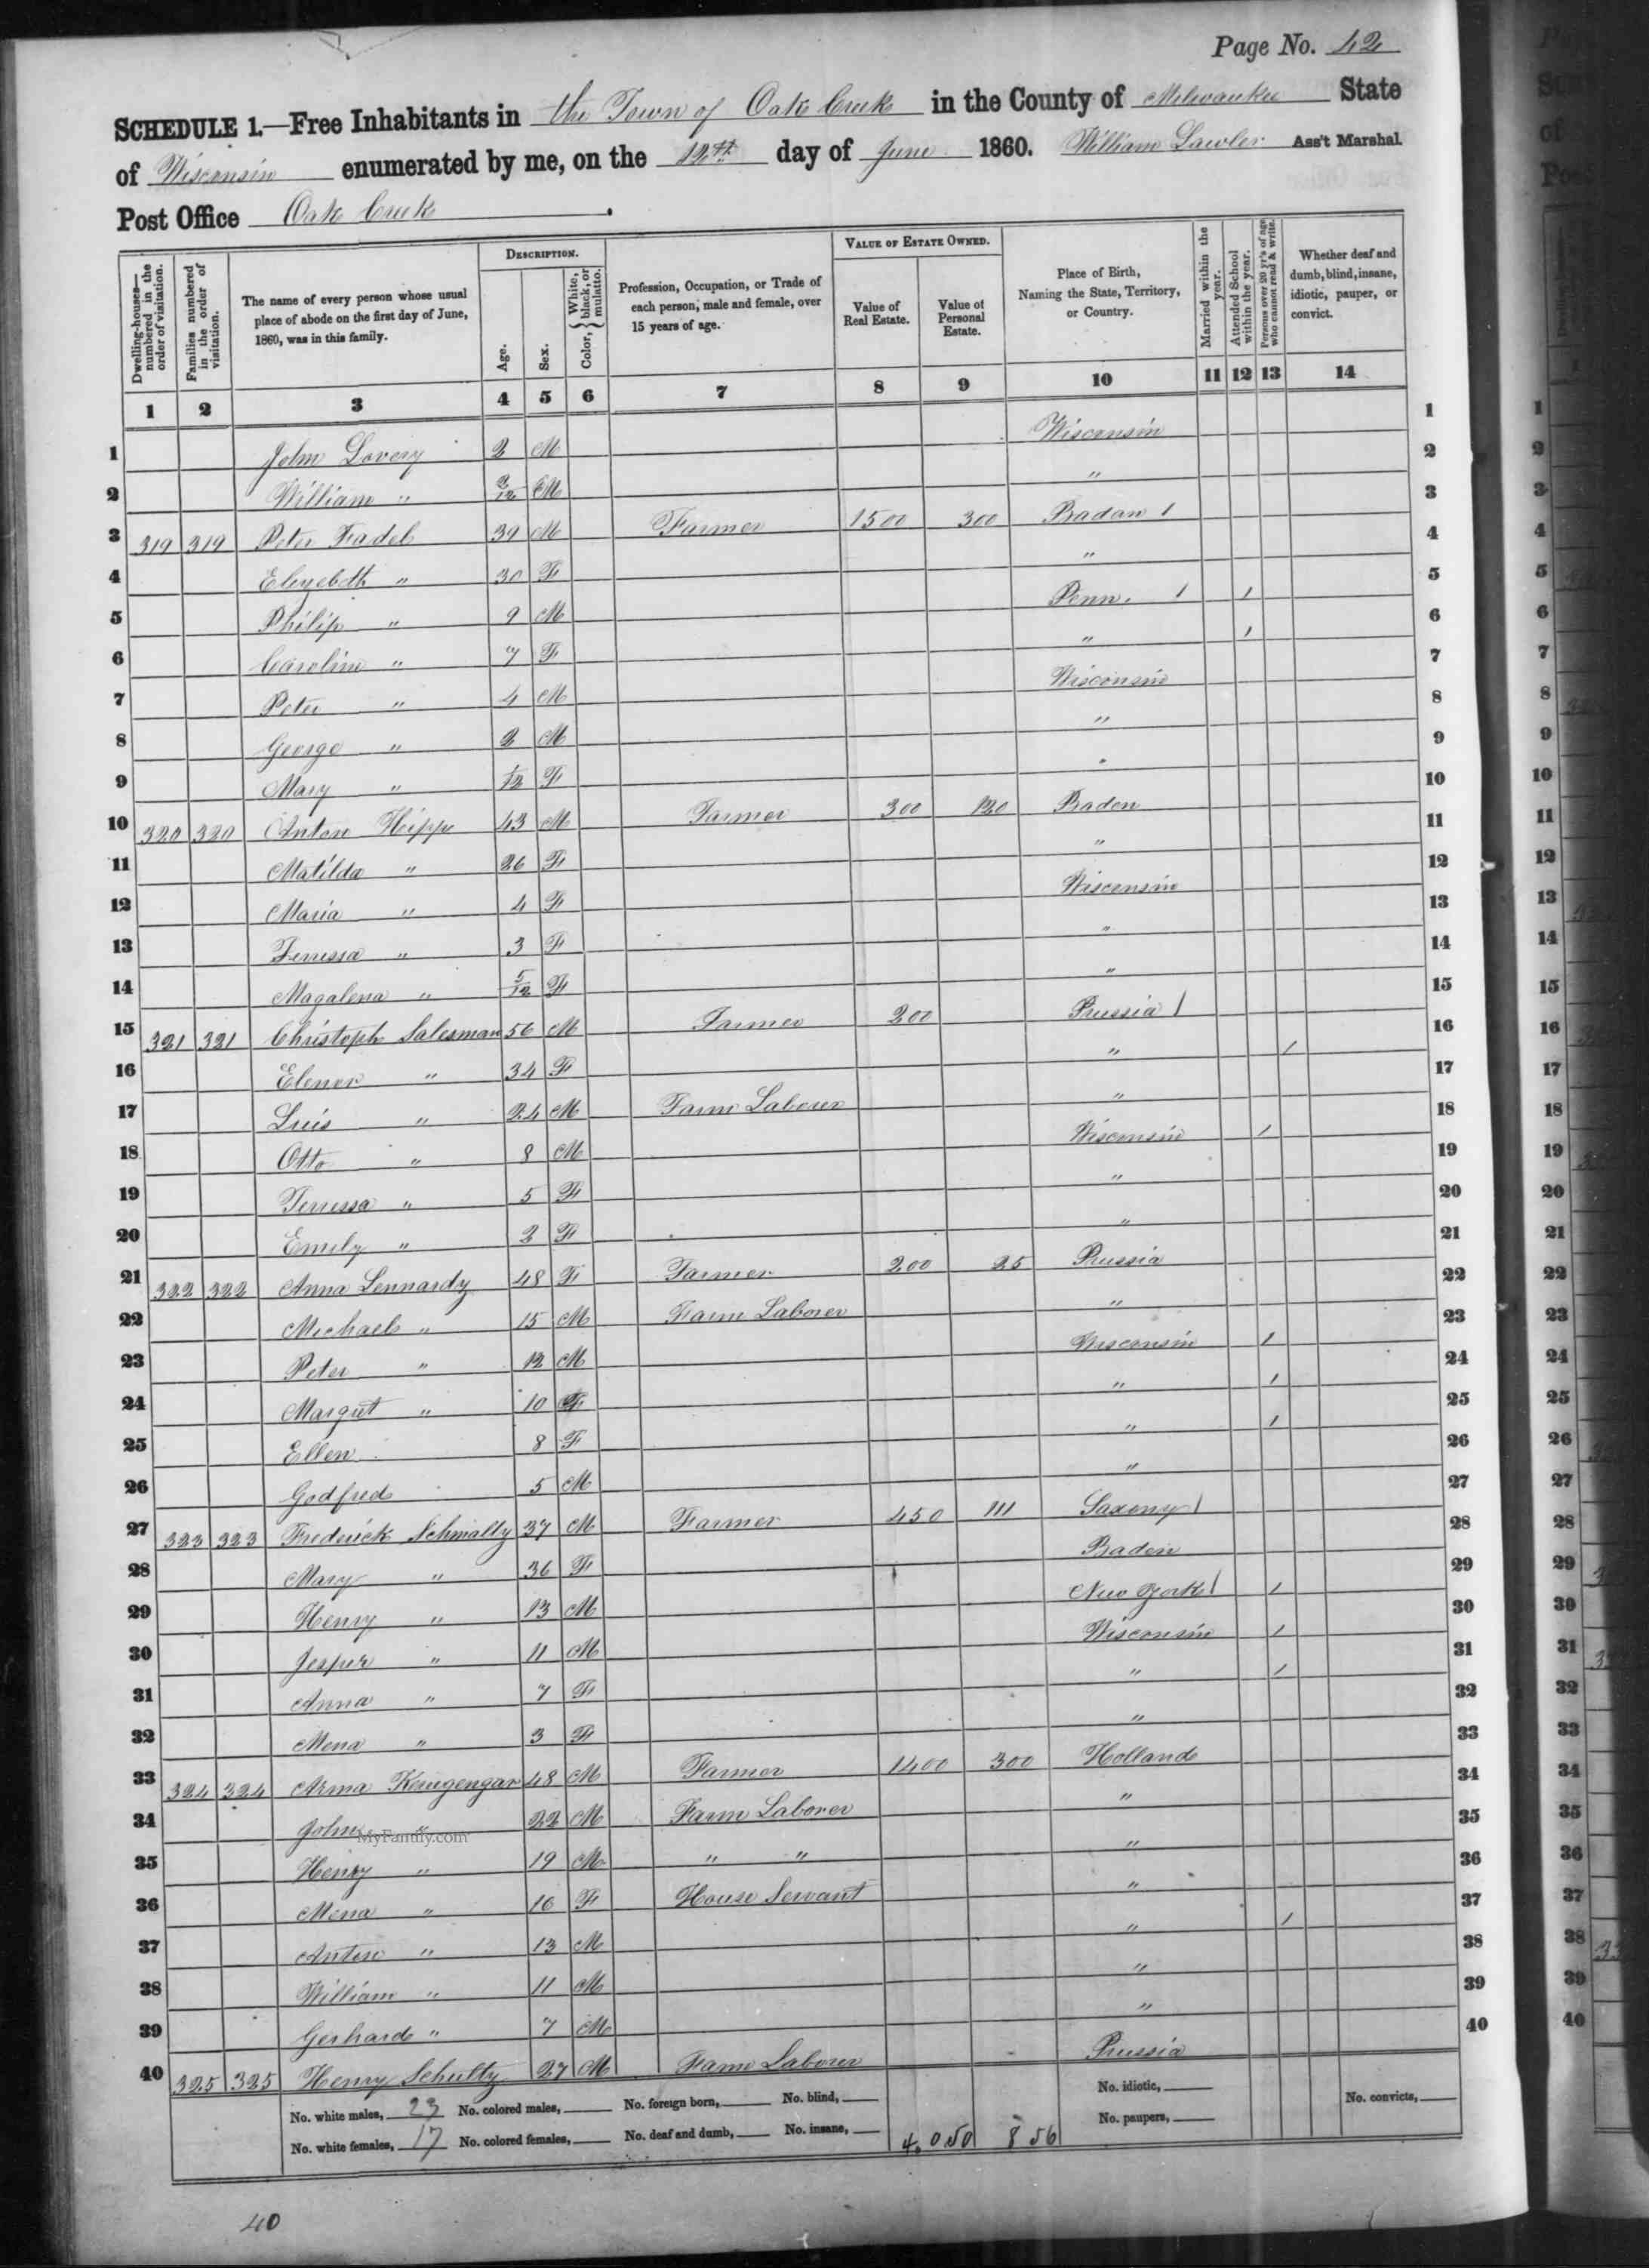 Page No. 42
SCHEDULE 1.—Free Inhabitants in the Town of Oak Creek in the County of Milwaukee State
of Wisconsin enumerated by me, on the 12th day of June 1860. William Lawler Ass't Marshal
Post Office Oak Creek.
Dwelling-houses—numbered in the order of visitation. Families numbered in the order of visitation. The name of every person whose usual place of abode on the first day of June, 1860, was in this family. DESCRIPTION. Age. Sex. Color, { White, black, or mulatto. Profession, Occupation, or Trade of each person, male and female, over 15 years of age. VALUE OF ESTATE OWNED. Value of Real Estate. Value of Personal Estate. Place of Birth, Naming the State, Territory, or Country. Married within the year. Attended School within the year. Persons over 20 yr's of age who cannot read & write. Whether deaf and dumb, blind, insane, idiotic, pauper, or convict.
1 2 3 4 5 6 7 8 9 10 11 12 13 14
1 John Lavery 2 M Wisconsin 1
2 William " 2/12 M " 2
3 319 319 Peter Fadel 39 M Farmer 1500 300 Badan 1 3
4 " 30 F " 4
5 Philip " 9 M Penn. 1 1 5
6 Caroline " 7 F " 1 6
7 Peter " 4 M Wisconsin 7
8 George " 2 M " 8
9 Mary " 1/12 F " 9
10 320 320 Anton Hipp 43 M Farmer 300 120 Baden 10
11 Matilda " 26 F " 11
12 Maria " 4 F Wisconsin 12
13 " 3 F " 13
14 Magalena " 5/12 F " 14
15 321 321 Christoph Salesman 56 M Farmer 200 Prussia 1 15
16 Elenor " 34 F " 1 16
17 Luis " 24 M Farm Laborer " 17
18 Otto " 8 M Wisconsin 1 18
19 Terressa " 5 F " 19
20 Emily " 2 F " 20
21 322 322 Anna Lennardy 48 F Farmer 200 25 Prussia 21
22 Michael " 15 M Farm Laborer " 22
23 Peter " 12 M Wisconsin 1 23
24 Margret " 10 F " 1 24
25 Ellen 8 F " 1 25
26 Godfred 5 M " 26
27 323 323 Frederick Schmalty 37 M Farmer 450 111 Saxony 1 27
28 Mary " 36 F Baden 28
29 Henry " 13 M New York 1 1 29
30 Jesper " 11 M Wisconsin 1 30
31 Anna " 7 F " 1 31
32 Mena " 3 F " 32
33 324 324 48 M Farmer 1400 300 Holland 33
34 John " 22 M Farm Laborer " 34
35 Henry " 19 M " " " 35
36 Mena " 16 F House Servant " 36
37 Anton " 13 M " 1 37
38 William " 11 M " 38
39 Gerhard " 7 M " 39
40 325 325 Henry Schulty 27 M Farm Laborer Prussia 40
No. white males, 23 No. colored males, No. foreign born, No. blind, No. idiotic, No. convicts,
No. white females, 17 No. colored females, No. deaf and dumb, No. insane, 4.050 856 No. paupers,
40
MyFamily.com